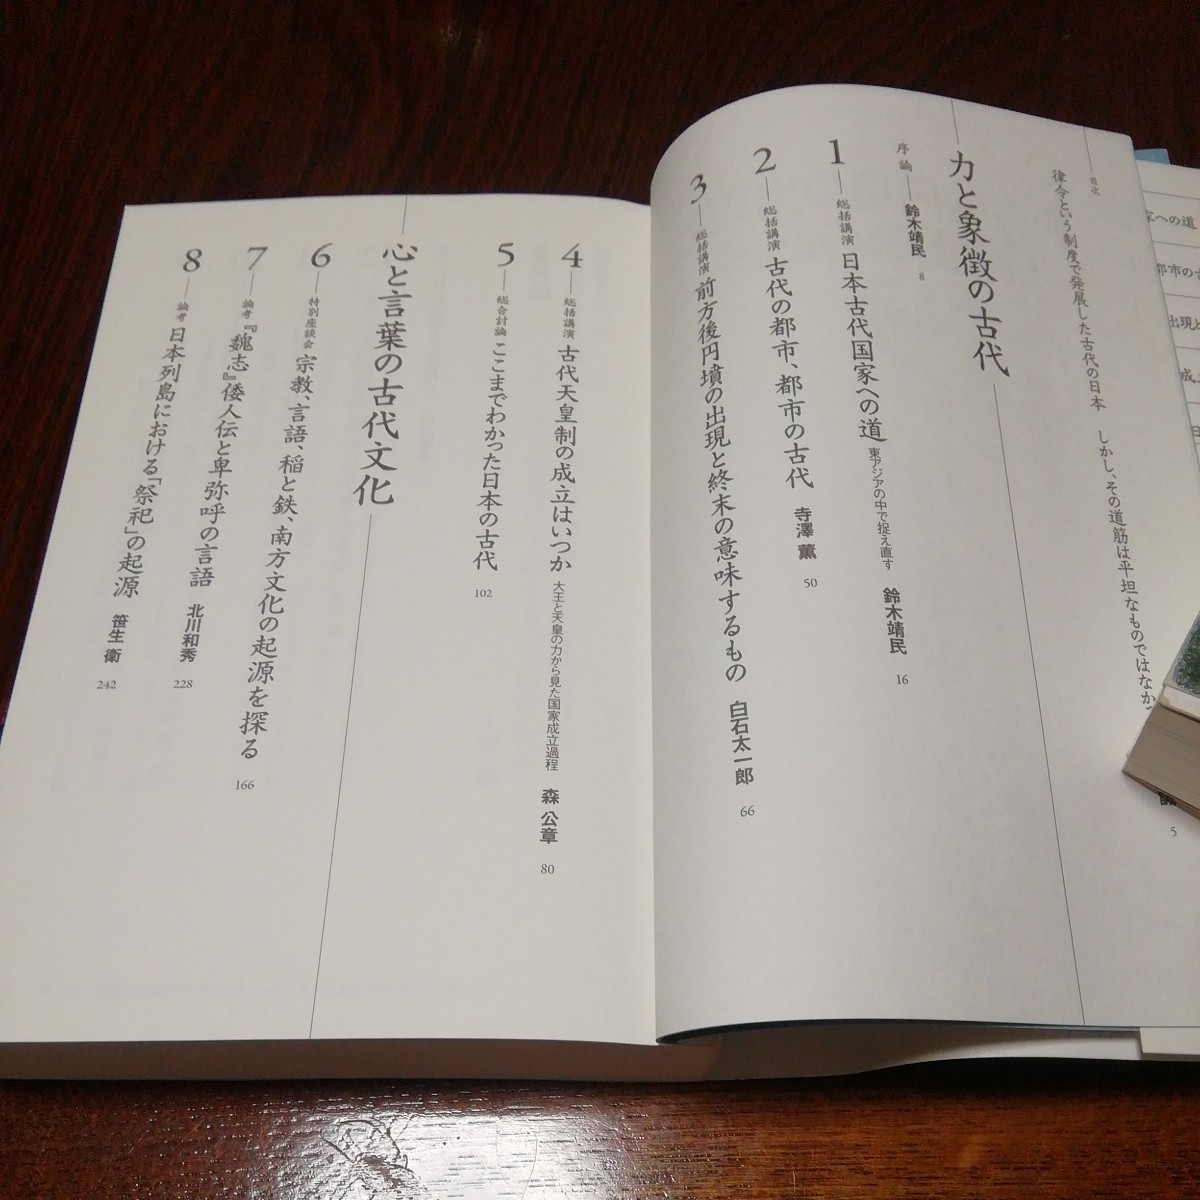 目次
律令という制度で発展した古代の日本 しかし、その道筋は平坦なものではなか
5
力と象徴の古代
序論 鈴木靖民 8
1 総括講演 日本古代国家への道 東アジアの中で捉え直す 鈴木靖民 16
2 総括講演 古代の都市、都市の古代 寺澤 薫 50
3 総括講演 前方後円墳の出現と終末の意味するもの 白石太一郎 66
4 総括講演 古代天皇制の成立はいつか 大王と天皇の力から見た国家成立過程 森 公章 80
5 総合討論 ここまでわかった日本の古代 102
心と言葉の古代文化
6 特別座談会 宗教、言語、稲と鉄、南方文化の起源を探る 166
7 論考 『魏志』倭人伝と卑弥呼の言語 北川和秀 228
8 論考 日本列島における「祭祀」の起源 笹生 衛 242
家への道
都市の古
出現と
成立